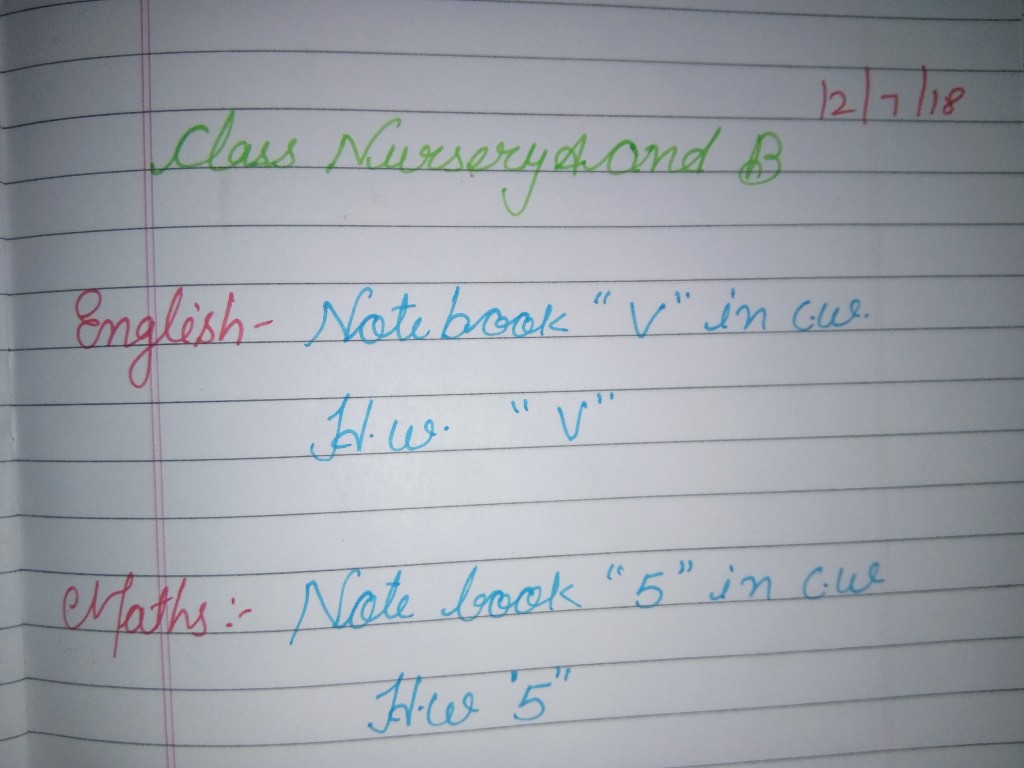 12/7/18
Class Nursery A and B
English- Notebook "V" in c.w.
H.w. "V"
Maths:- Note book "5" in c.w
H.w '5"